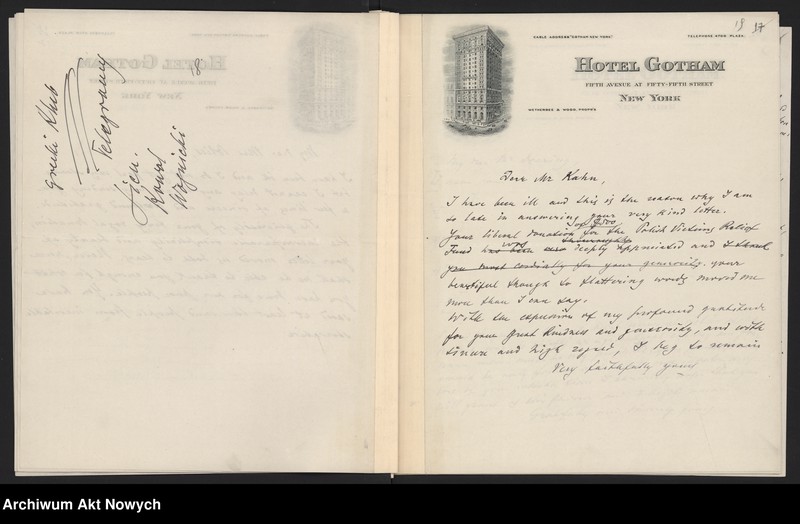 Telegramy
18 17
CABLE ADDRESS "GOTHAM NEW YORK"
TELEPHONE 2700, PLAZA.
HOTEL GOTHAM
FIFTH AVENUE AT FIFTY-FIFTH STREET
NEW YORK
WETHERBEE & WOOD, PROP'RS
Dear Mr Kahn,
I have been ill and this is the reason why I am
so late in answering your very kind letter.
Your liberal donation of $500 for the Polish Victims Relief
Fund has been was thoroughly deeply appreciated and I thank
you most cordially for your generosity. Your
beautiful though so flattering words moved me
more than I can say.
With the expression of my profound gratitude
for your great kindness and generosity, and with
sincere and high regard, I beg to remain
Very faithfully yours
Archiwum Akt Nowych